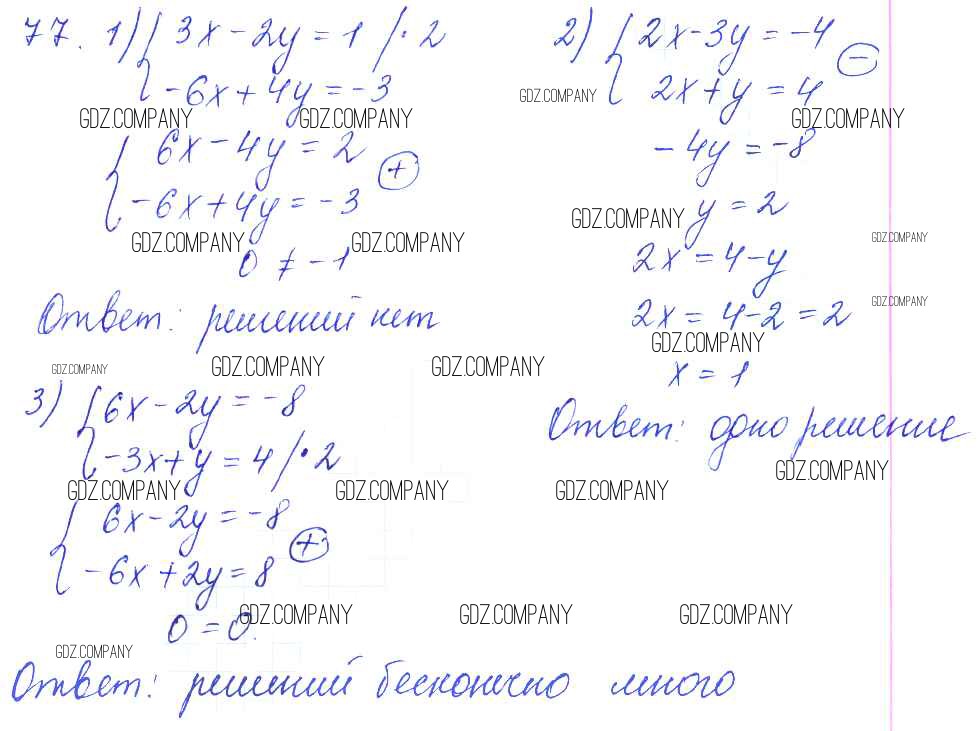 77. 1) { 3x - 2y = 1 /· 2
-6x + 4y = -3
GDZ.COMPANY GDZ.COMPANY
{ 6x - 4y = 2
-6x + 4y = -3 (+)
GDZ.COMPANY GDZ.COMPANY
0 ≠ -1
Ответ: решений нет
GDZ.COMPANY GDZ.COMPANY GDZ.COMPANY
2) { 2x - 3y = -4
2x + y = 4 (-)
GDZ.COMPANY GDZ.COMPANY
-4y = -8
y = 2
GDZ.COMPANY GDZ.COMPANY
2x = 4 - y
2x = 4 - 2 = 2
GDZ.COMPANY
GDZ.COMPANY
x = 1
Ответ: одно решение
GDZ.COMPANY
3) { 6x - 2y = -8
-3x + y = 4 /· 2
GDZ.COMPANY GDZ.COMPANY GDZ.COMPANY
{ 6x - 2y = -8
-6x + 2y = 8 (+)
0 = 0.
GDZ.COMPANY GDZ.COMPANY GDZ.COMPANY
GDZ.COMPANY
Ответ: решений бесконечно много